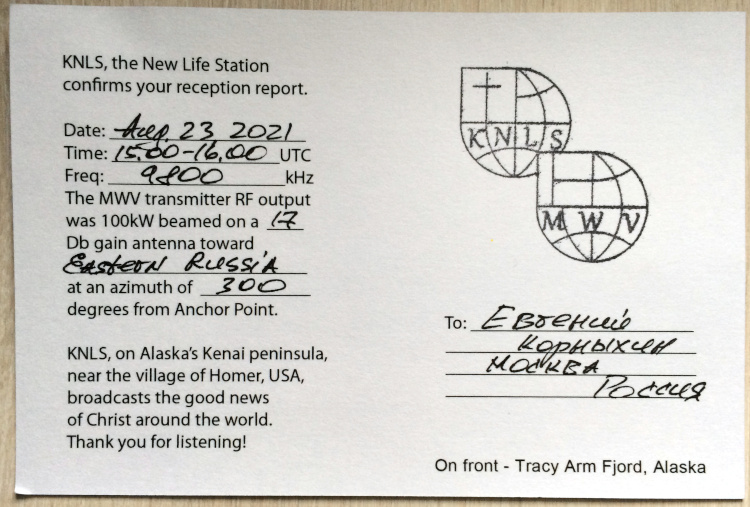 KNLS, the New Life Station
confirms your reception report.
Date: Aug 23 2021
Time: 15.00-16.00 UTC
Freq: 9800 kHz
The MWV transmitter RF output
was 100kW beamed on a 17
Db gain antenna toward
Eastern Russia
at an azimuth of 300
degrees from Anchor Point.
KNLS, on Alaska's Kenai peninsula,
near the village of Homer, USA,
broadcasts the good news
of Christ around the world.
Thank you for listening!
KNLS
MWV
To: Евгений
Корныхин
Москва
Россия
On front - Tracy Arm Fjord, Alaska